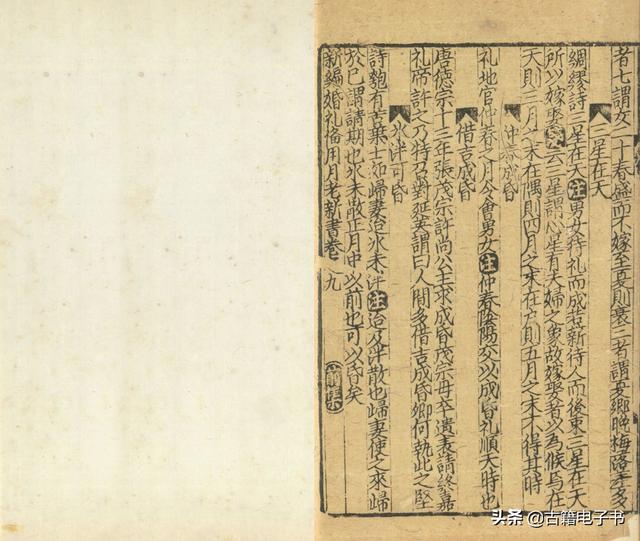 者七謂女二十春盛而不嫁至夏則衰三者謂憂鄉晚梅落差多
三星在天
綢繆詩三星在天注男女待礼而成若薪待人而後束三星在天
所以嫁娶云三星謂心星有夫婦之象故嫁娶者以為候焉在
天則三月之末在隅則四月之末在戶則五月之末不得其時
仲春成昏
礼地官仲春之月令會男女注仲春陰陽交以成昏礼順天時也
借吉成昏
唐德宗十三年張茂宗許尚公主求成昏茂宗母卒遺表請終嘉
礼帝許之乃特召對延英謂曰人間多借吉成昏卿何執此之堅
氷泮可昏
詩匏有苦葉士如歸妻迨氷未泮注迨及泮散也歸妻使之來歸
於已謂請期也氷未散正月中以前也可以昏矣
新編婚礼備用月老新書卷之九 前集
头条 @古籍电子书